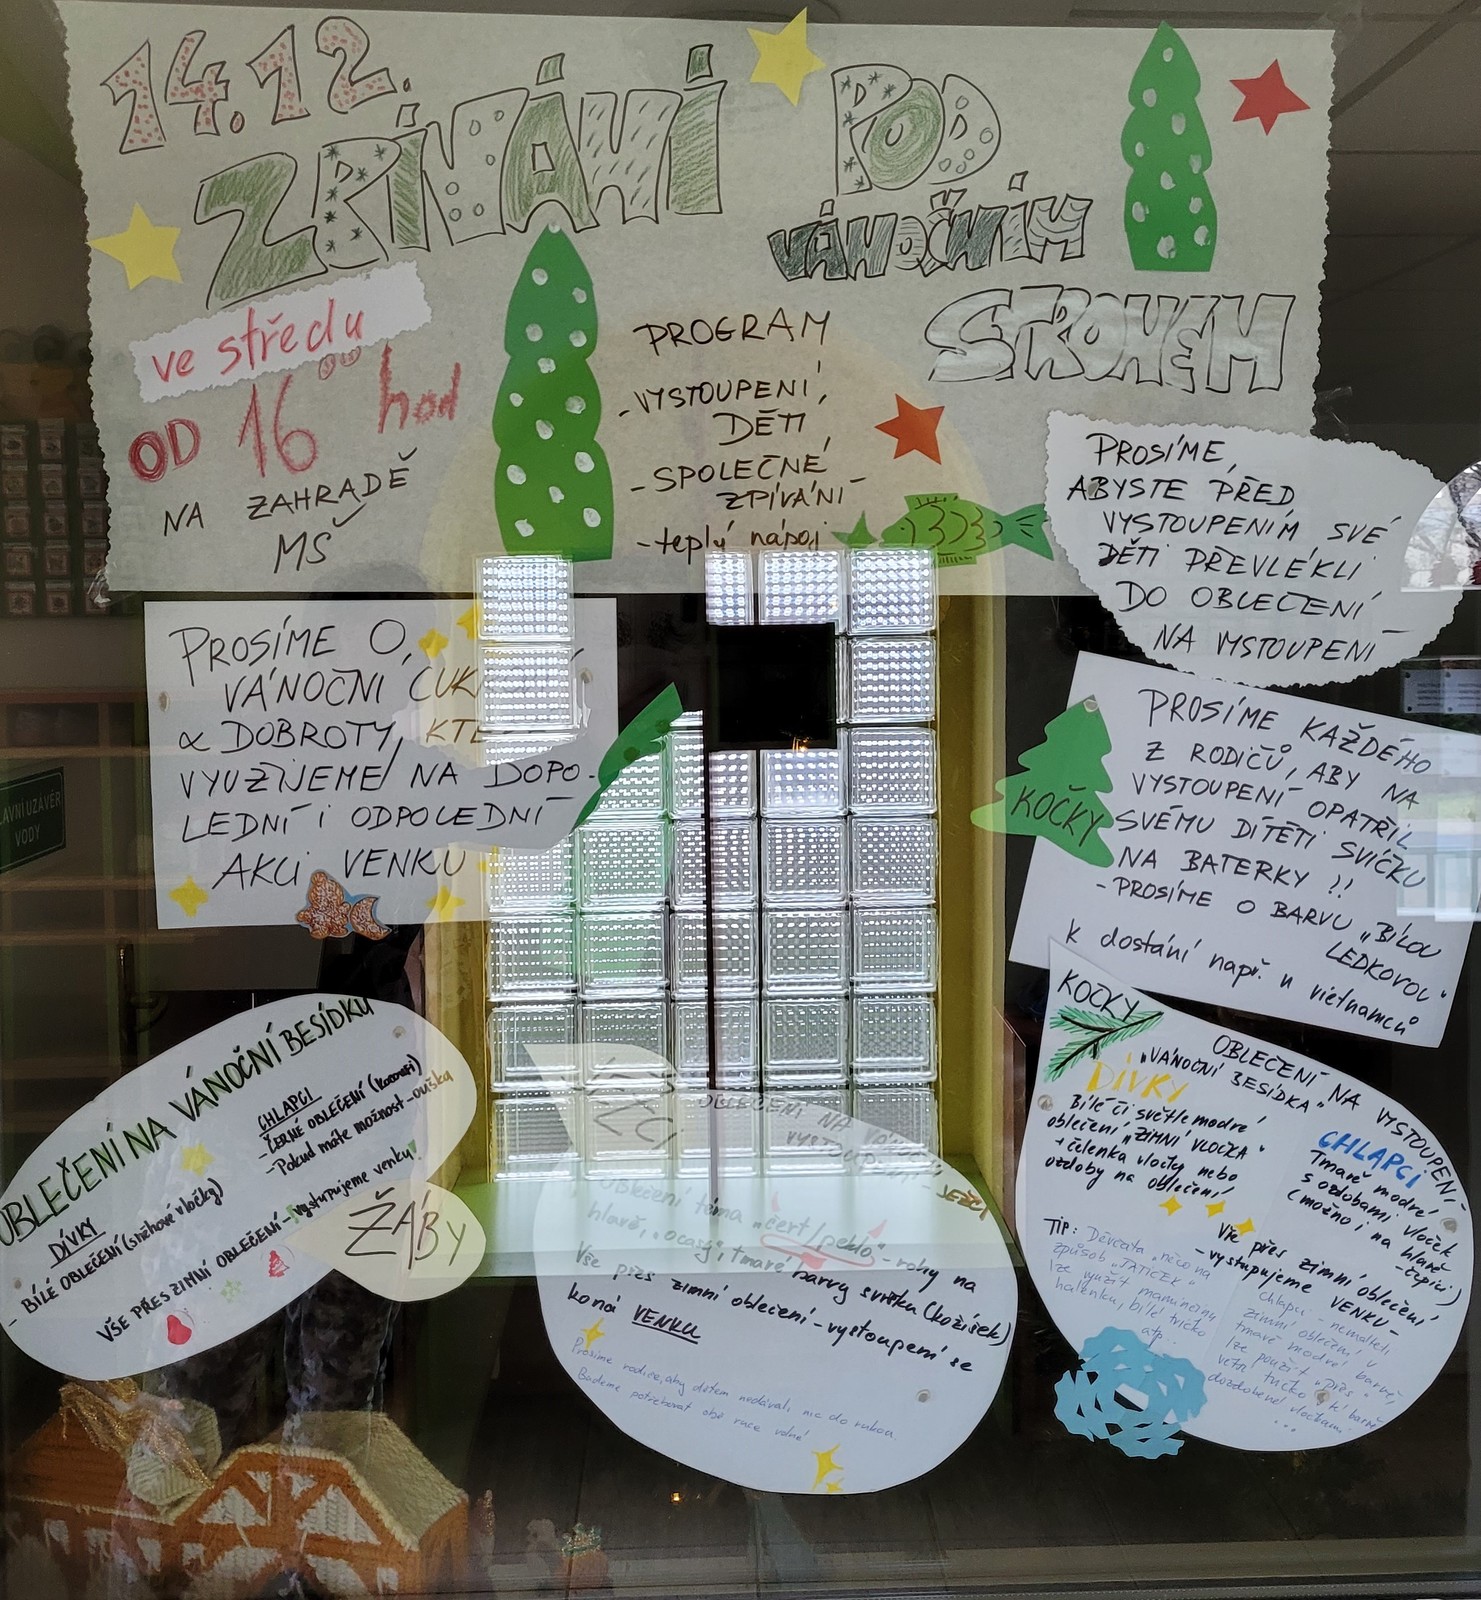 14.12.
ZPÍVÁNÍ POD
VÁNOČNÍM
STROMEM
ve středu
OD 16°° hod
NA ZAHRADĚ
MŠ
PROGRAM
- VYSTOUPENÍ
DĚTÍ
- SPOLEČNÉ
ZPÍVÁNÍ
- teplý nápoj
PROSÍME,
ABYSTE PŘED
VYSTOUPENÍM SVÉ
DĚTI PŘEVLÉKLI
DO OBLEČENÍ
NA VYSTOUPENÍ
PROSÍME O
VÁNOČNÍ CUK
α DOBROTY, KTE
VYUŽIJEME NA DOPO-
LEDNÍ i ODPOLEDNÍ
AKCI VENKU
PROSÍME KAŽDÉHO
Z RODIČŮ, ABY NA
VYSTOUPENÍ OPATŘIL
SVÉMU DÍTĚTI SVÍČKU
NA BATERKY !!
- PROSÍME O BARVU „BÍLOU
LEDKOVOU"
k dostání např. u vietnamců
KOČKY
HLAVNÍ UZÁVĚR
VODY
OBLEČENÍ NA VÁNOČNÍ BESÍDKU
CHLAPCI
- ČERNÉ OBLEČENÍ
- Pokud máte možnost - ouška
DÍVKY
- BÍLÉ OBLEČENÍ (sněhové vločky)
VŠE PŘES ZIMNÍ OBLEČENÍ - vystupujeme venku!
ŽÁBY
JEŽCI
OBLEČENÍ NA VÁNOČNÍ
VYSTOUPENÍ - JEŽCI
Oblečení téma „čert/peklo" - rohy na
hlavě, „ocasy", tmavé barvy svrška (kožíšek)
Vše přes zimní oblečení - vystoupení se
koná VENKU
Prosíme rodiče, aby dětem nedávali nic do rukou.
Budeme potřebovat obě ruce volné!
KOČKY
OBLEČENÍ NA VYSTOUPENÍ -
„VÁNOČNÍ BESÍDKA"
DÍVKY
Bílé či světle modré
oblečení „ZIMNÍ VLOČKA"
+ čelenka vločky nebo
ozdoby na oblečení
CHLAPCI
Tmavě modré
s ozdobami vloček
(možno i na hlavě
- čepici)
Vše přes zimní oblečení
- vystupujeme VENKU -
TIP: Děvčata „něco na
způsob „TATÍČEK"
lze využít maminčinu
halenku, bílé tričko
atp..
Chlapci - nemáte-li
zimní oblečení v
tmavě modré barvě,
lze použít „přes"
větší tričko té barvy
dozdobené vločkami
...